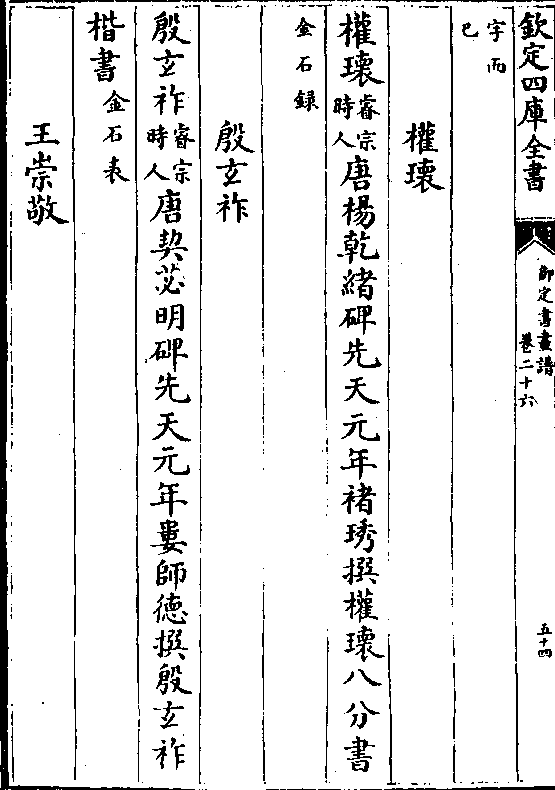 欽定四庫全書
御定書畫譜
卷二十六
五十四
字而
已
權瓌
權瓌睿宗時人唐楊乾緒碑先天元年褚琇撰權瓌八分書
金石録
殷玄祚
殷玄祚睿宗時人唐契苾明碑先天元年婁師德撰殷玄祚
楷書金石表
王崇敬